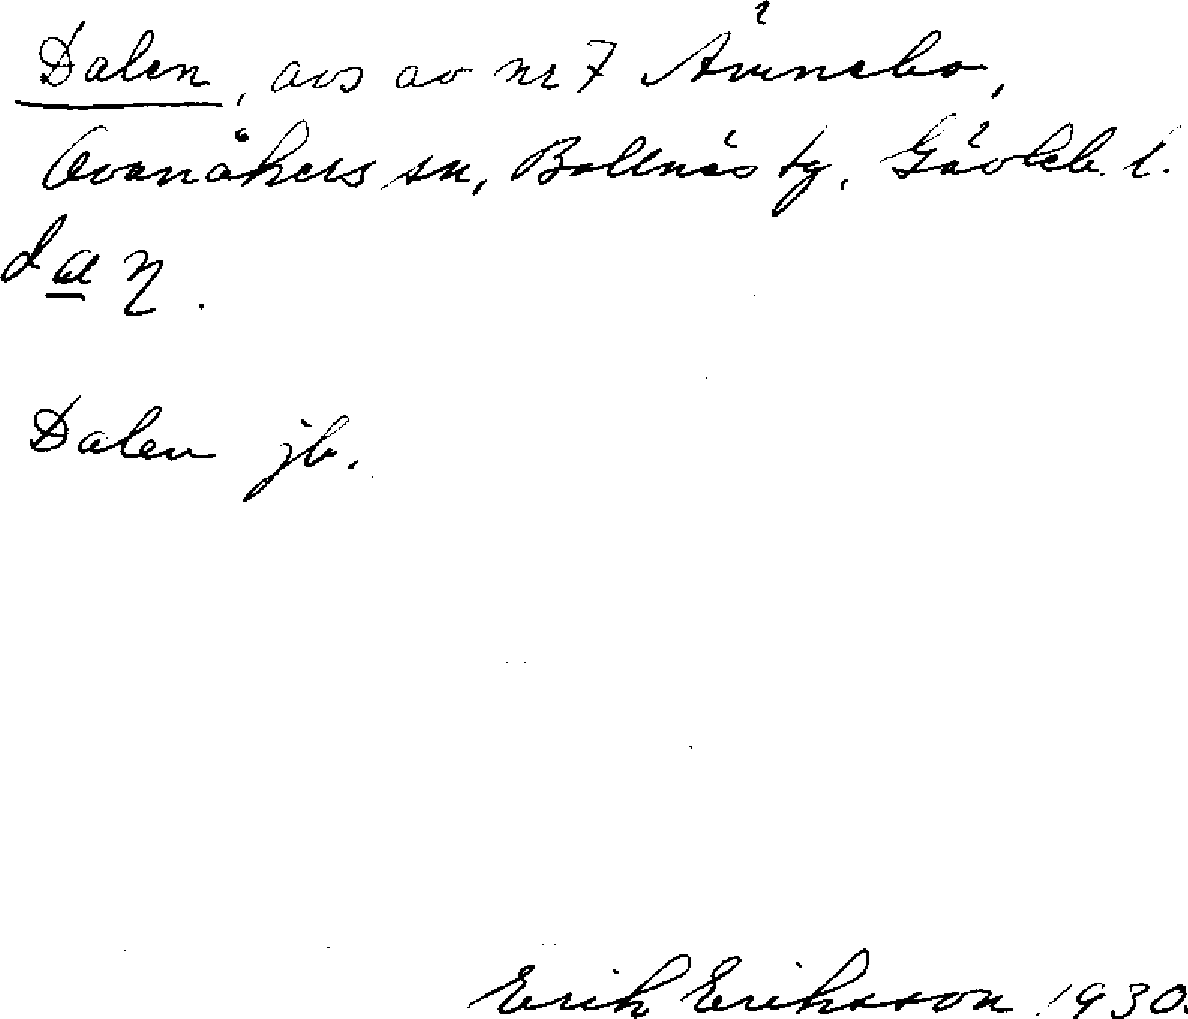 Dalen, avs av nr 7 Ämnebo,
Ovanåkers sn, Bollnäs tg, Gävleb. l.
Dalen jb.
Erik Eriksson 1930.